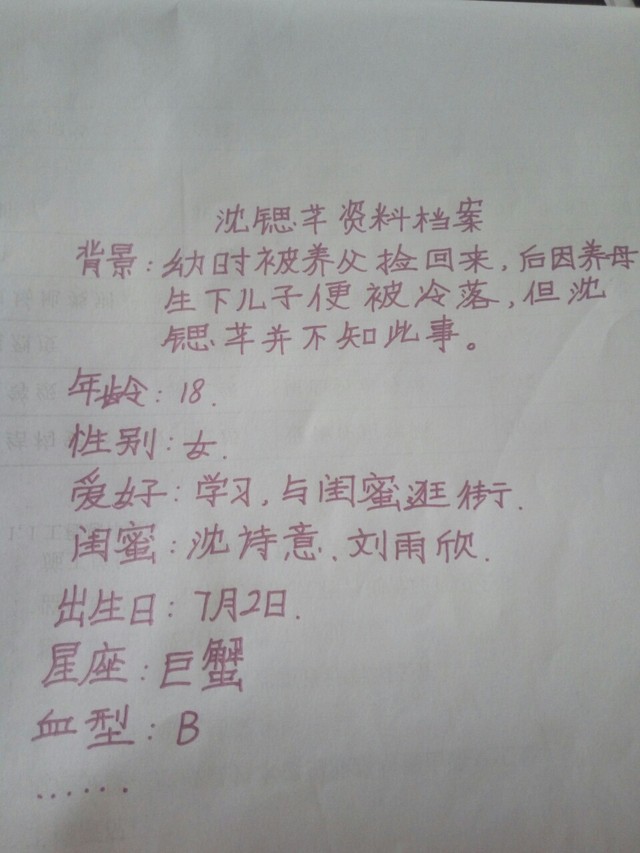 沈锶芊资料档案
背景：幼时被养父捡回来，后因养母
生下儿子便被冷落，但沈
锶芊并不知此事。
年龄：18.
性别：女.
爱好：学习，与闺蜜逛街.
闺蜜：沈诗意、刘雨欣.
出生日：7月2日.
星座：巨蟹
血型：B
......